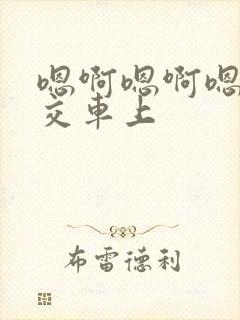 嗯啊嗯啊嗯
交车上
布雷德利